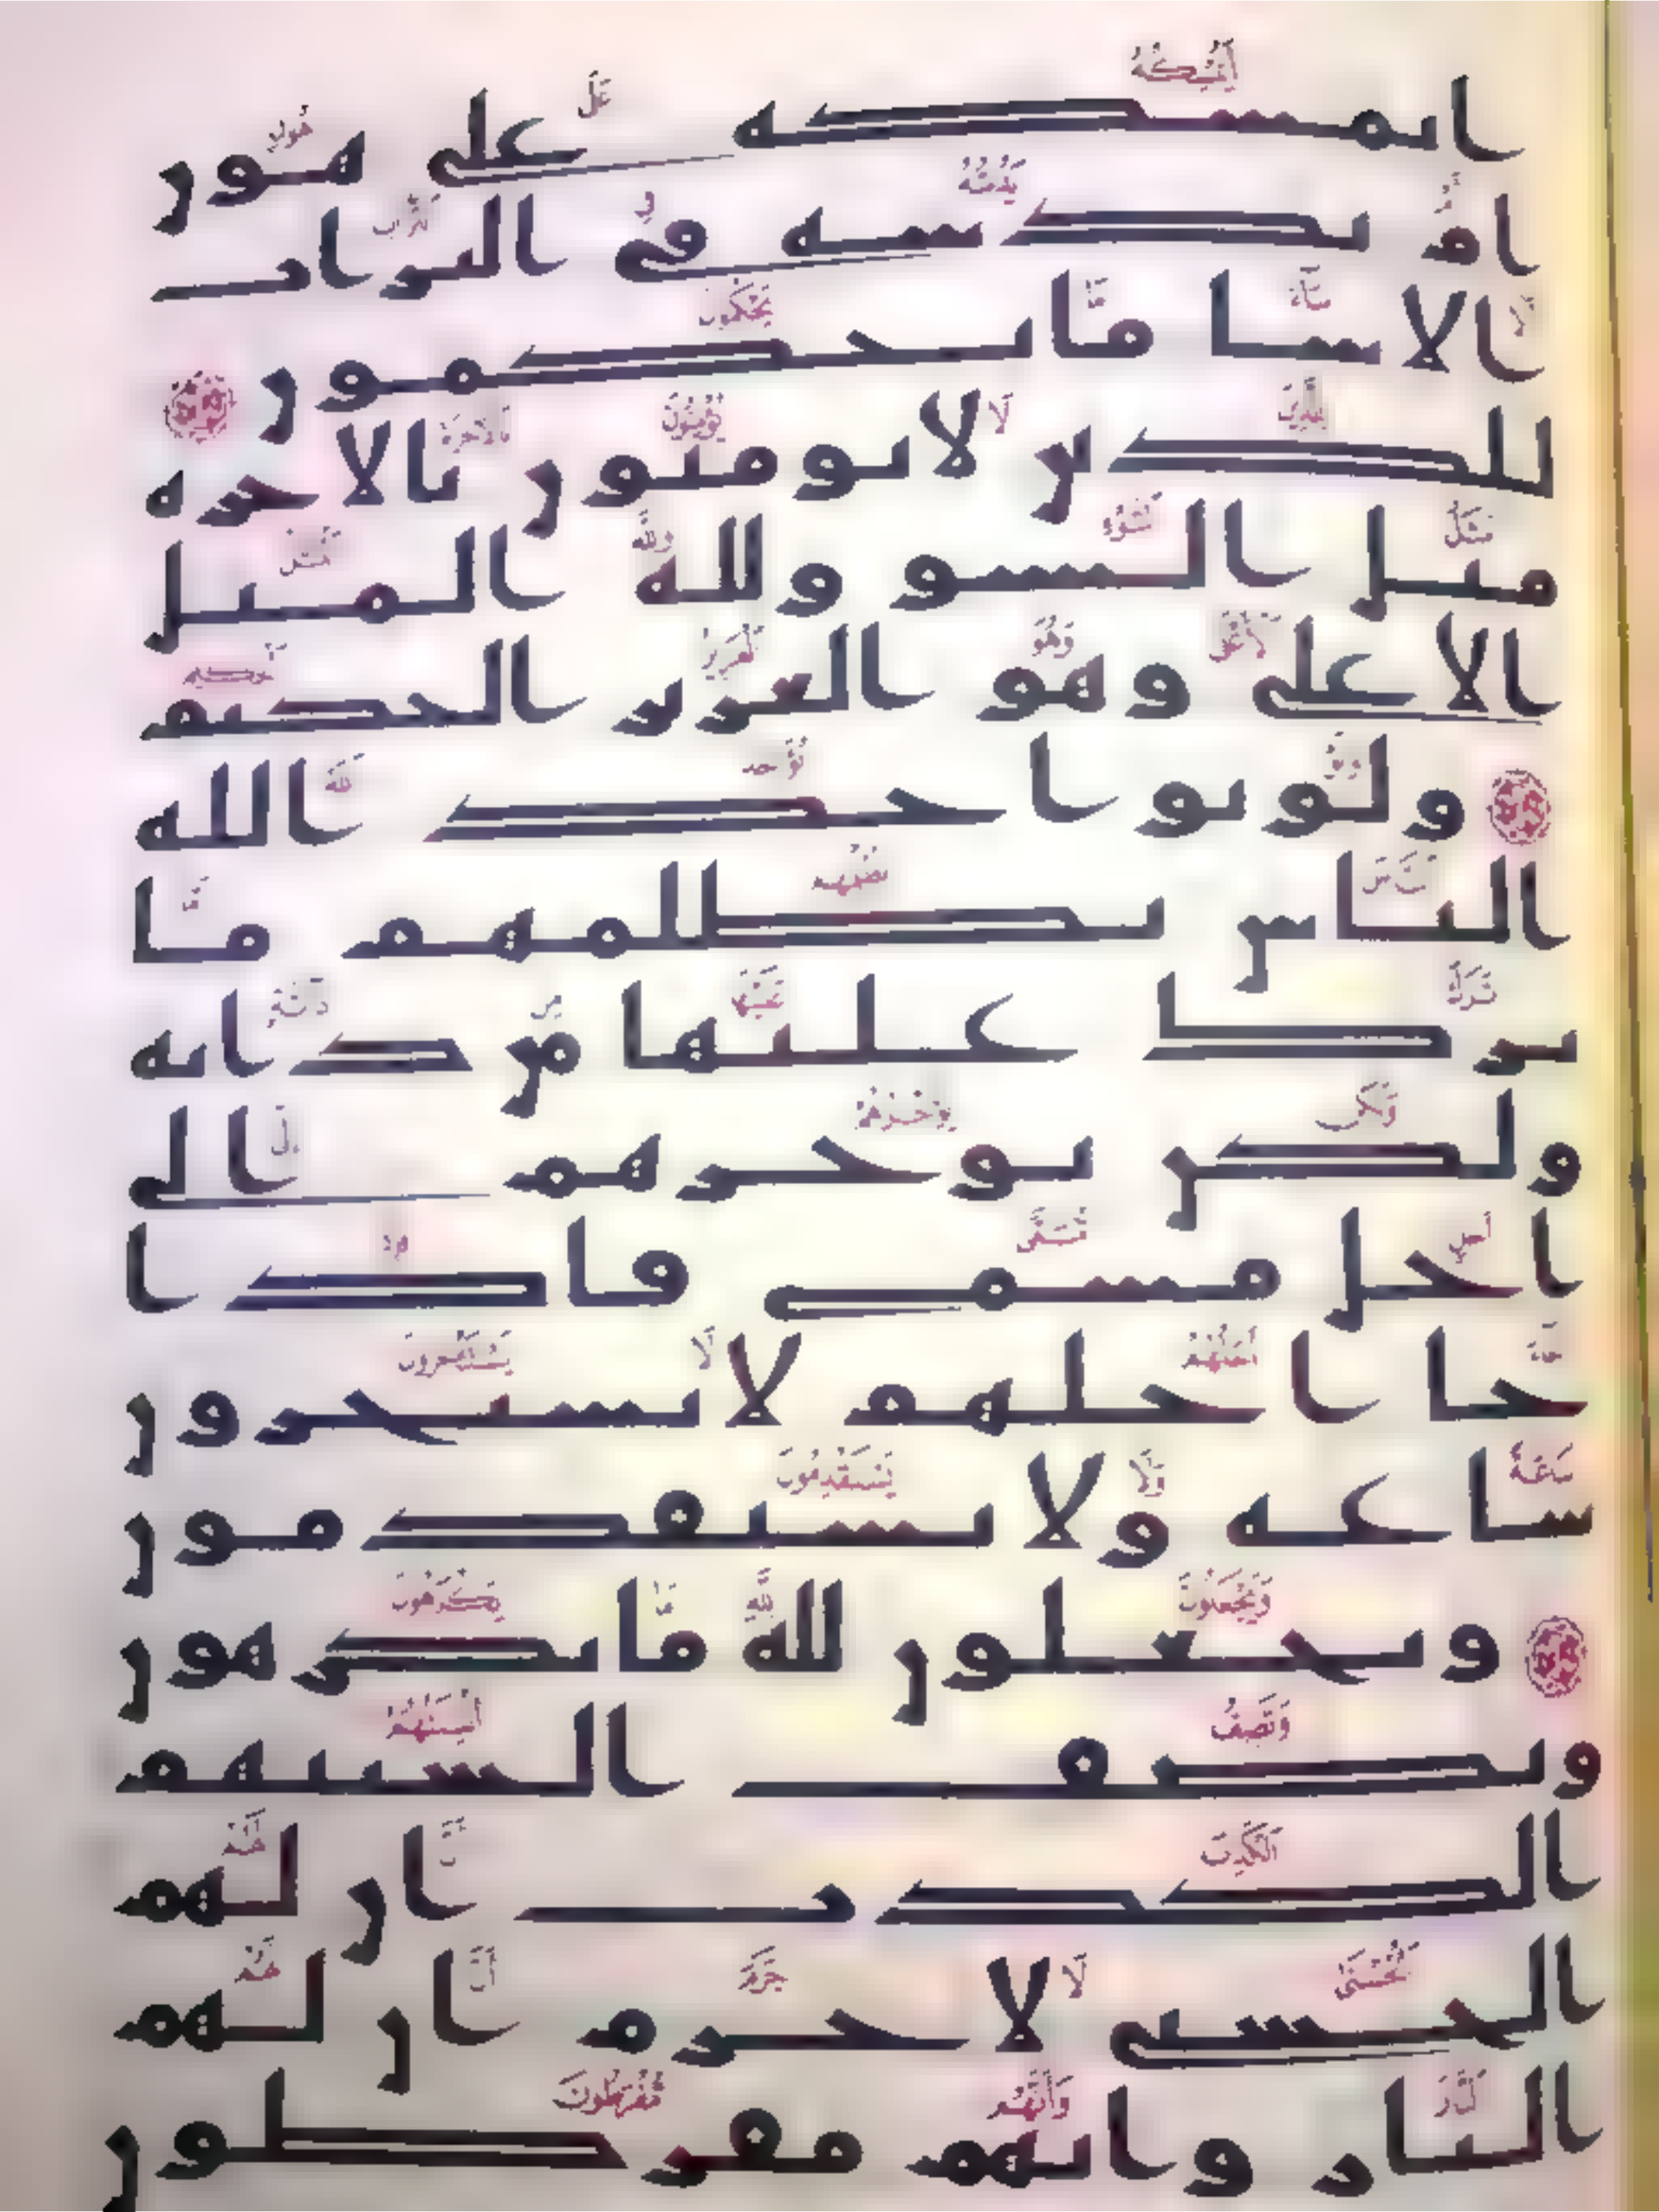 ايمسكه على هون
ام يدسه في التراب
الا سا ما يحكمون
للذين لا يومنون بالاخره
مثل السو ولله المثل
الاعلى وهو العزيز الحكيم
ولو يواخذ الله
الناس بظلمهم ما
ترك عليها من دابه
ولكن يوخرهم الى
اجل مسمى فاذا
جا اجلهم لا يستخرون
ساعه ولا يستقدمون
ويجعلون لله ما يكرهون
وتصف السنتهم
الكذب ان لهم
الحسنى لا جرم ان لهم
النار وانهم مفرطون